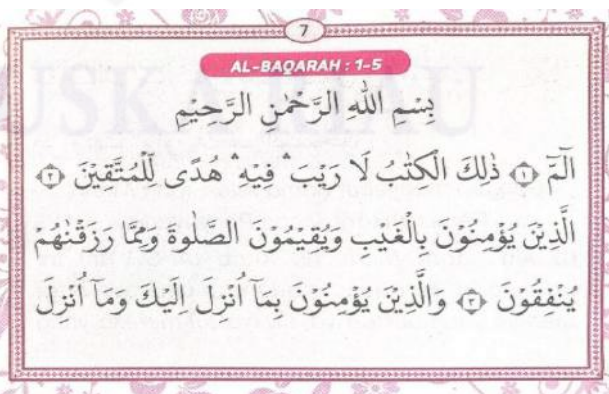 7
AL-BAQARAH : 1-5
بِسْمِ اللهِ الرَّحْمٰنِ الرَّحِيْمِ
الٓمّٓ ۝١ ذٰلِكَ الْكِتٰبُ لَا رَيْبَ ۛ فِيْهِ ۛ هُدًى لِّلْمُتَّقِيْنَ ۝٢
الَّذِيْنَ يُؤْمِنُوْنَ بِالْغَيْبِ وَيُقِيْمُوْنَ الصَّلٰوةَ وَمِمَّا رَزَقْنٰهُمْ
يُنْفِقُوْنَ ۝٣ وَالَّذِيْنَ يُؤْمِنُوْنَ بِمَآ اُنْزِلَ اِلَيْكَ وَمَآ اُنْزِلَ